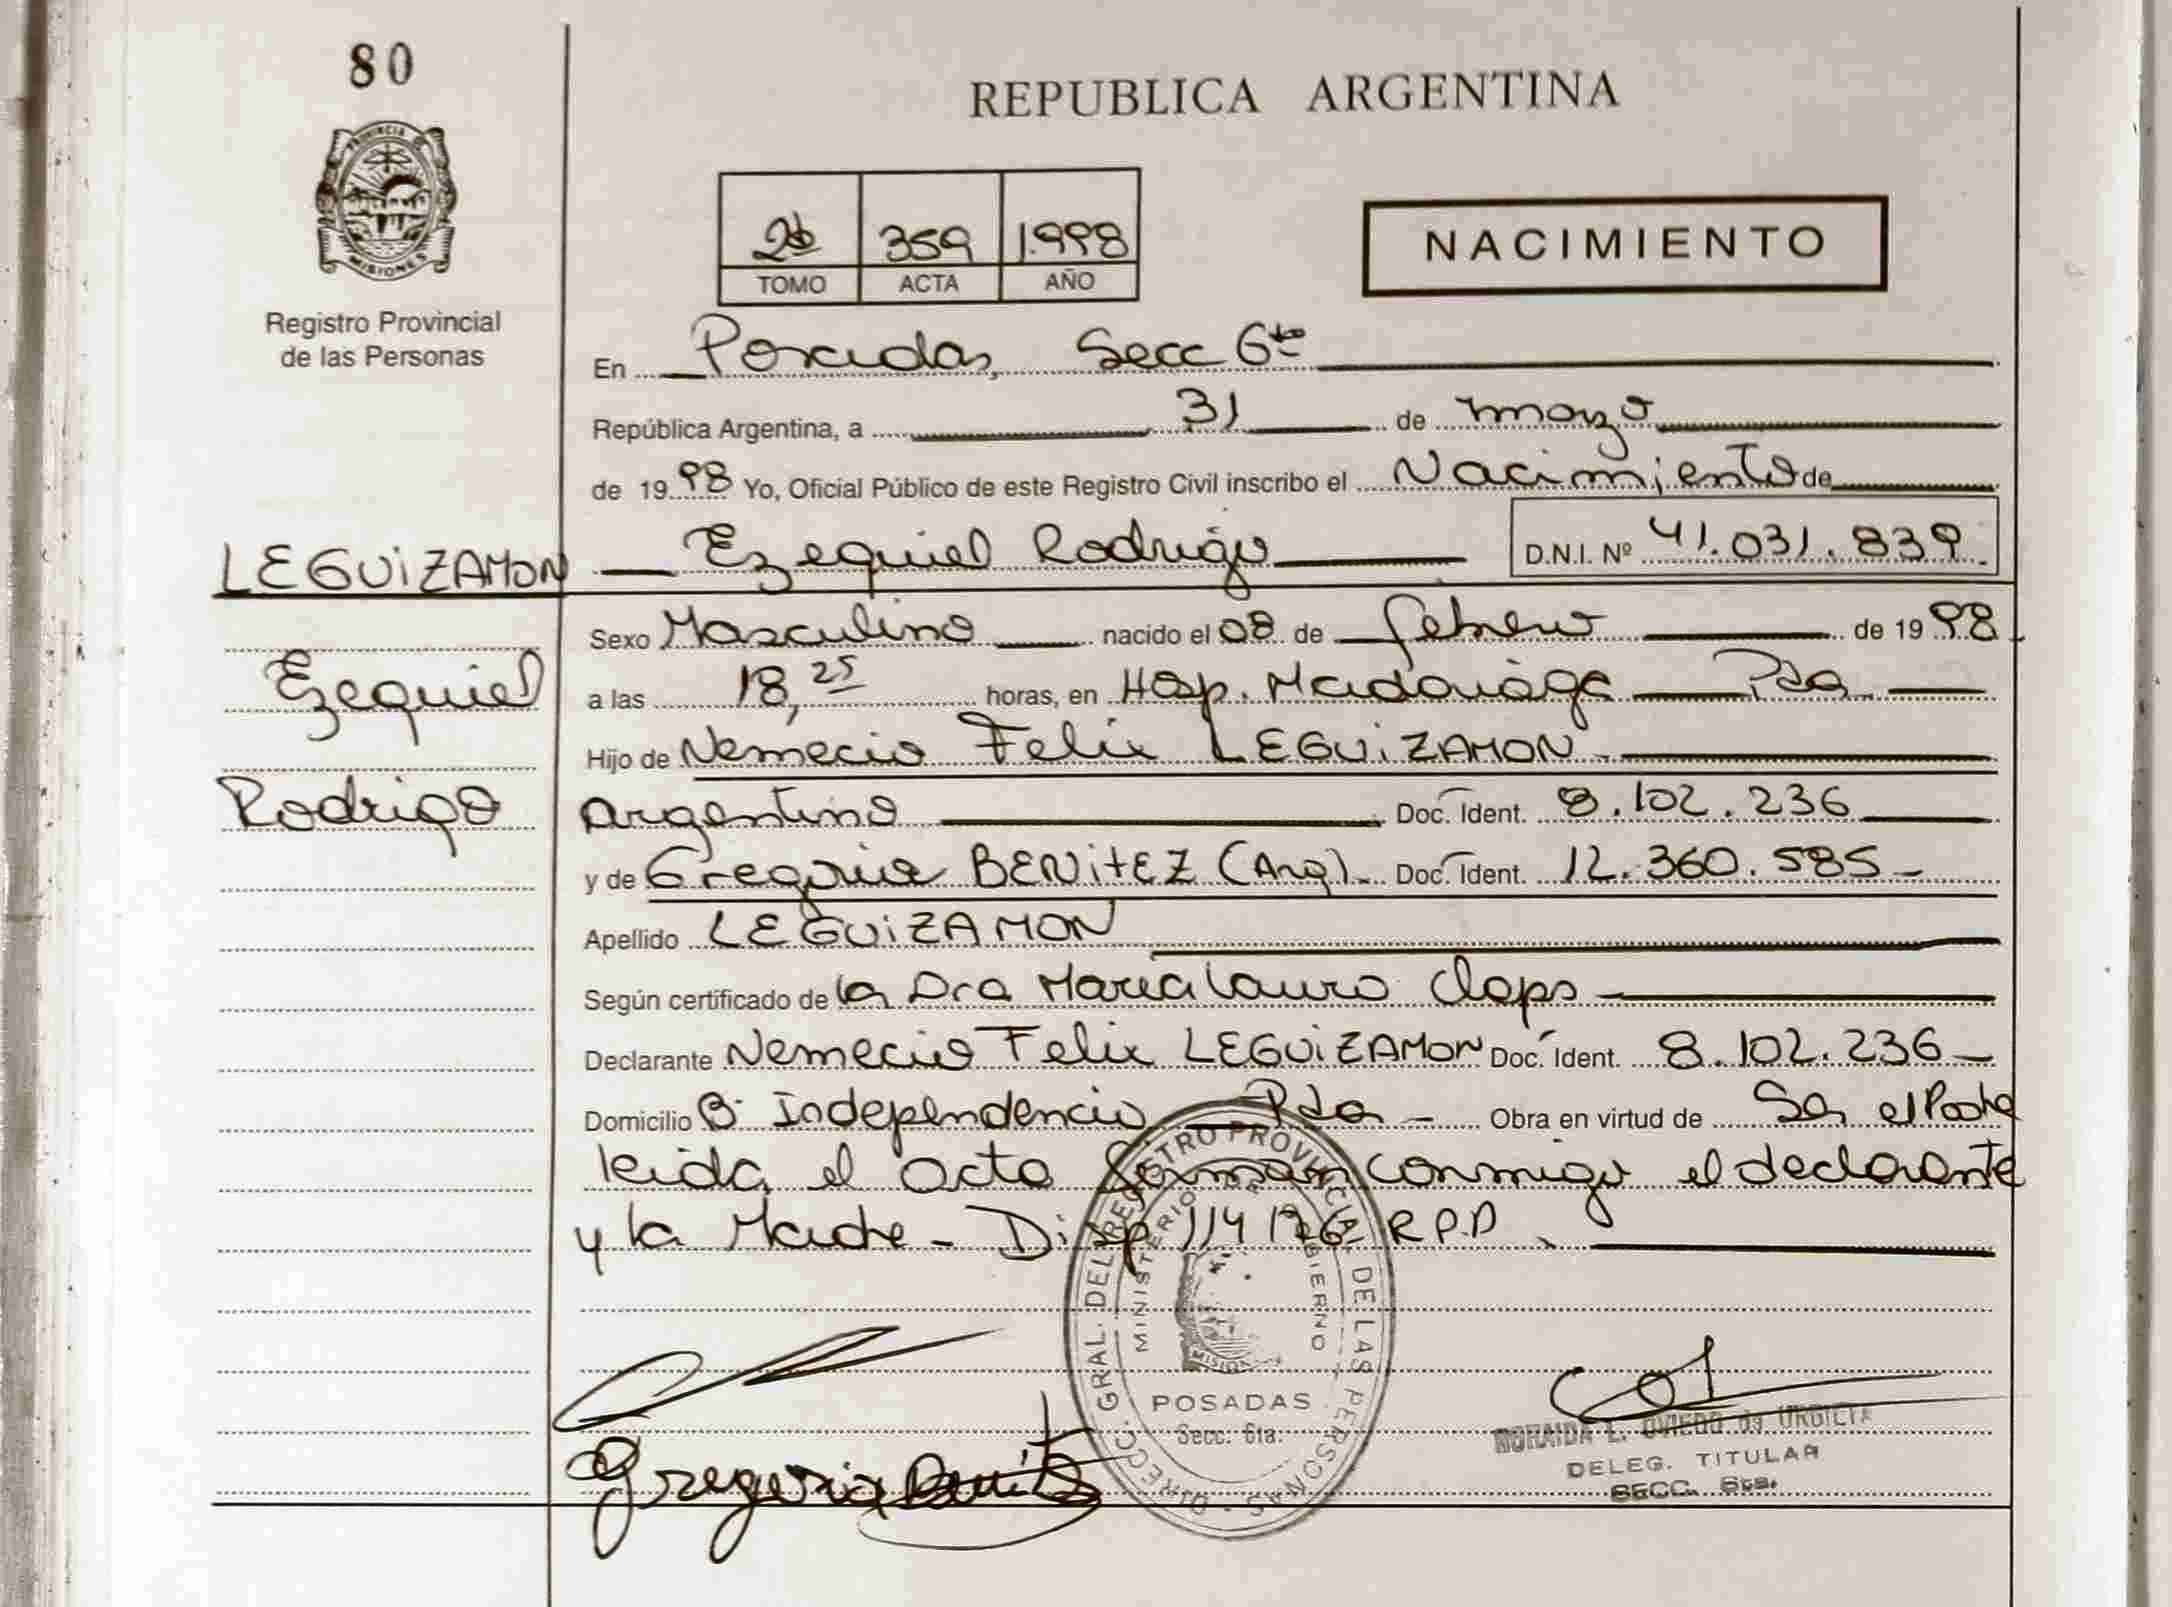 80
PROVINCIA DE
MISIONES
Registro Provincial
de las Personas
REPUBLICA ARGENTINA
359 1.998
TOMO ACTA AÑO
NACIMIENTO
En Posadas, Secc 6ta
República Argentina, a 31 de mayo
de 1998 Yo, Oficial Público de este Registro Civil inscribo el Nacimiento de
LEGUiZAMON Ezequiel Rodrigo D.N.I. Nº 41.031.839
Sexo Masculino nacido el 08 de febrero de 1998
Ezequiel
a las 18,25 horas, en Hosp. Madariaga Pdas
Hijo de Nemecio Felix LEGUiZAMON
Rodrigo
Argentino Doc. Ident. 8.102.236
y de Gregoria BENiTEZ (Arg). Doc. Ident. 12.360.585
Apellido LEGUiZAMON
Según certificado de la Dra Maria Laura Claps
Declarante Nemecio Felix LEGUiZAMON Doc. Ident. 8.102.236
Domicilio Bº Independencia Pdas - Obra en virtud de Ser el Padre
leida el acta firman conmigo el declarante
y la Madre - Disp 114/76 R.P.P.
DIRECC. GRAL. DEL REGISTRO PROVINCIAL DE LAS PERSONAS
MINISTERIO DE GOBIERNO
MISIONES
POSADAS
Secc. 6ta.
Gregoria Benitez
L. OVIEDO de
DELEG. TITULAR
SECC. 6ta.